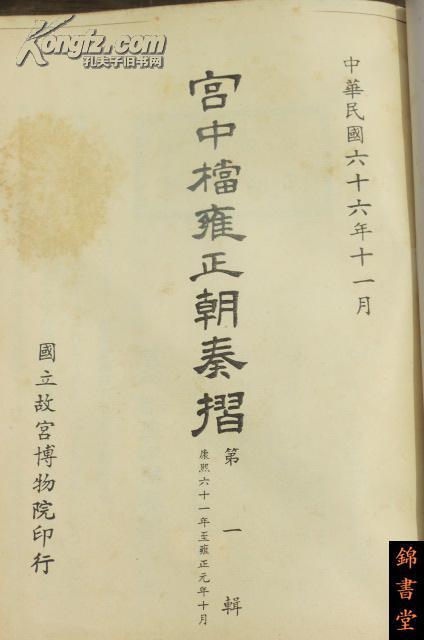 Kongfz.com
孔夫子旧书网
中華民國六十六年十一月
宮中檔雍正朝奏摺
第一輯
康熙六十一年至雍正元年十月
國立故宮博物院印行
錦書堂